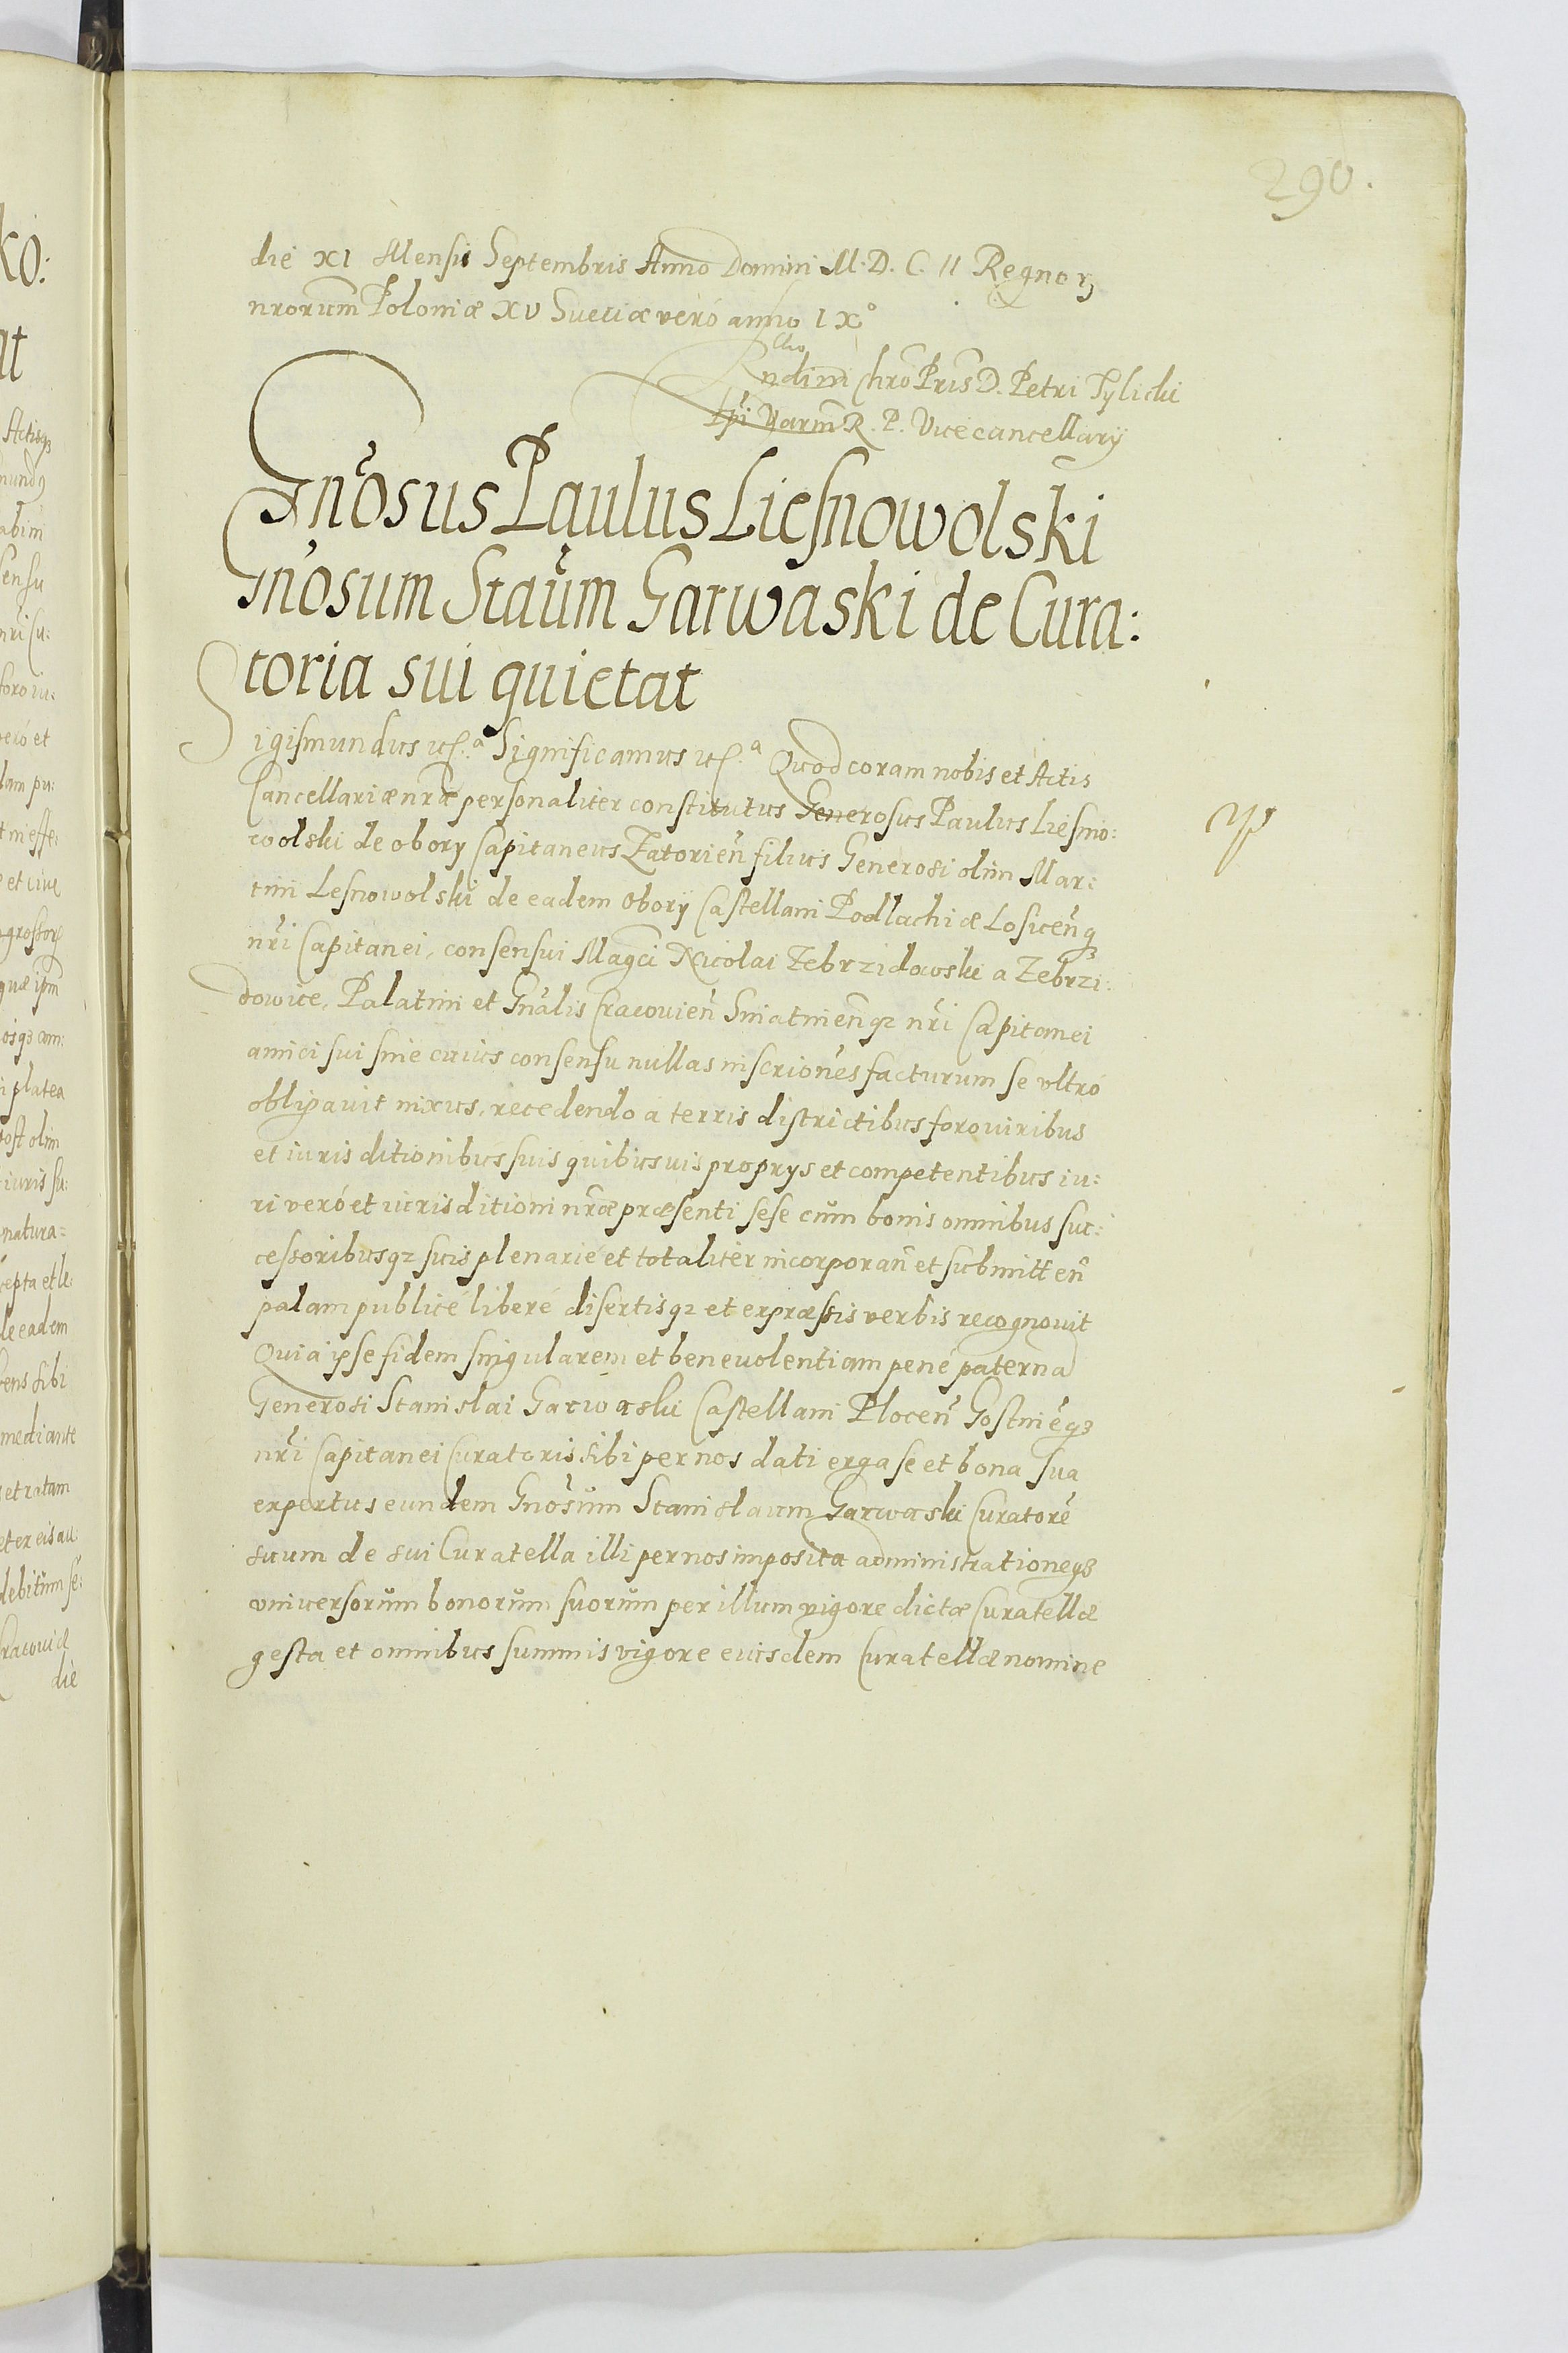 290.
die XI Mensis Septembris Anno Domini M.D.C. II Regnorꝝ
nrorum Poloniæ XV Sueciæ veró anno IXº
Rndim Chro Pris D. Petri Tylicki
Epi Varm R. P. Vicecancellarij
Gnosus Paulus Liesnowolski
Gnosum Staum Garwaski de Cura:
toria sui quietat
Sigismundus etc.ª Significamus etc.ª Quod coram nobis et Actis
Cancellariæ nræ personaliter constitutus Generosus Paulus Liesno:
wolski de obory Capitaneus Zatorien filius Generosi olim Mar:
tini Lesnowolski de eadem Obory Castellani Podlachiæ Losicenq
nri Capitanei, consensui Magci Nicolai Zebrzidowski a Zebrzi:
dowice, Palatini et Gnalis Cracovien Sniatnienqꝫ nri Capitanei
amici sui sine cuius consensu nullas inscriones facturum se vltró
obligauit nixus, recedendo á terris districtibus foro viribus
et iuris ditionibus suis quibusuis proprys et competentibus iu:
ri veró et iurisditioni nræ præsenti sese cum bonis omnibus suc:
cessoribusqꝫ suis plenarie et totaliter incorporan et submitten
palam publicé liberé disertisqꝫ et expræssis verbis recognouit
Quia ipse fidem singularem et beneuolentiam pené paterna
Generosi Stanislai Garwaski Castellani Plocen Gostinieqꝫ
nri Capitanei Curatoris sibi per nos dati erga se et bona sua
expertus eundem Gnosum Stanislaum Garwaski Curatoré
suum de sui Curatella illi per nos imposita administrationeqꝫ
vniuersorum bonorum suorum per illum vigore dictæ Curatellæ
gesta et omnibus summis vigore eiusdem Curatellæ nomine